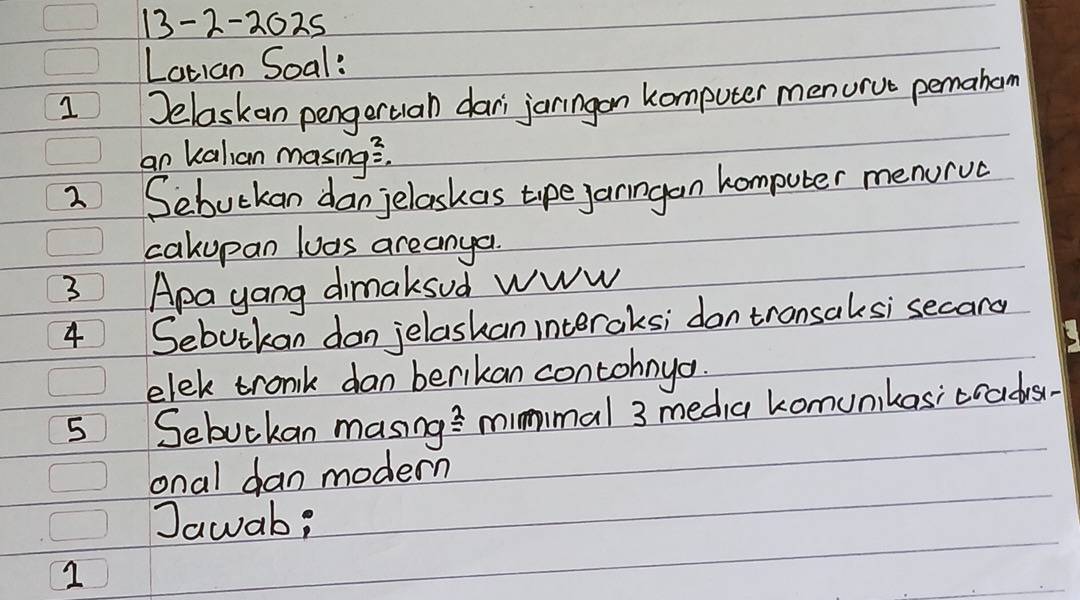 13-2-2025
Latian Soal:
1 Jelaskan pengertian dari jaringan komputer menurut pemaham
an kalian masing².
2 Sebutkan dan jelaskas tipe jaringan komputer menurut
cakupan luas areanya.
3 Apa yang dimaksud WWW
4 Sebutkan dan jelaskan interaksi dan transaksi secara
elek tronik dan berikan contohnya.
5 Sebutkan masing² minimal 3 media komunikasi tradisi-
onal dan modern
Jawab;
1